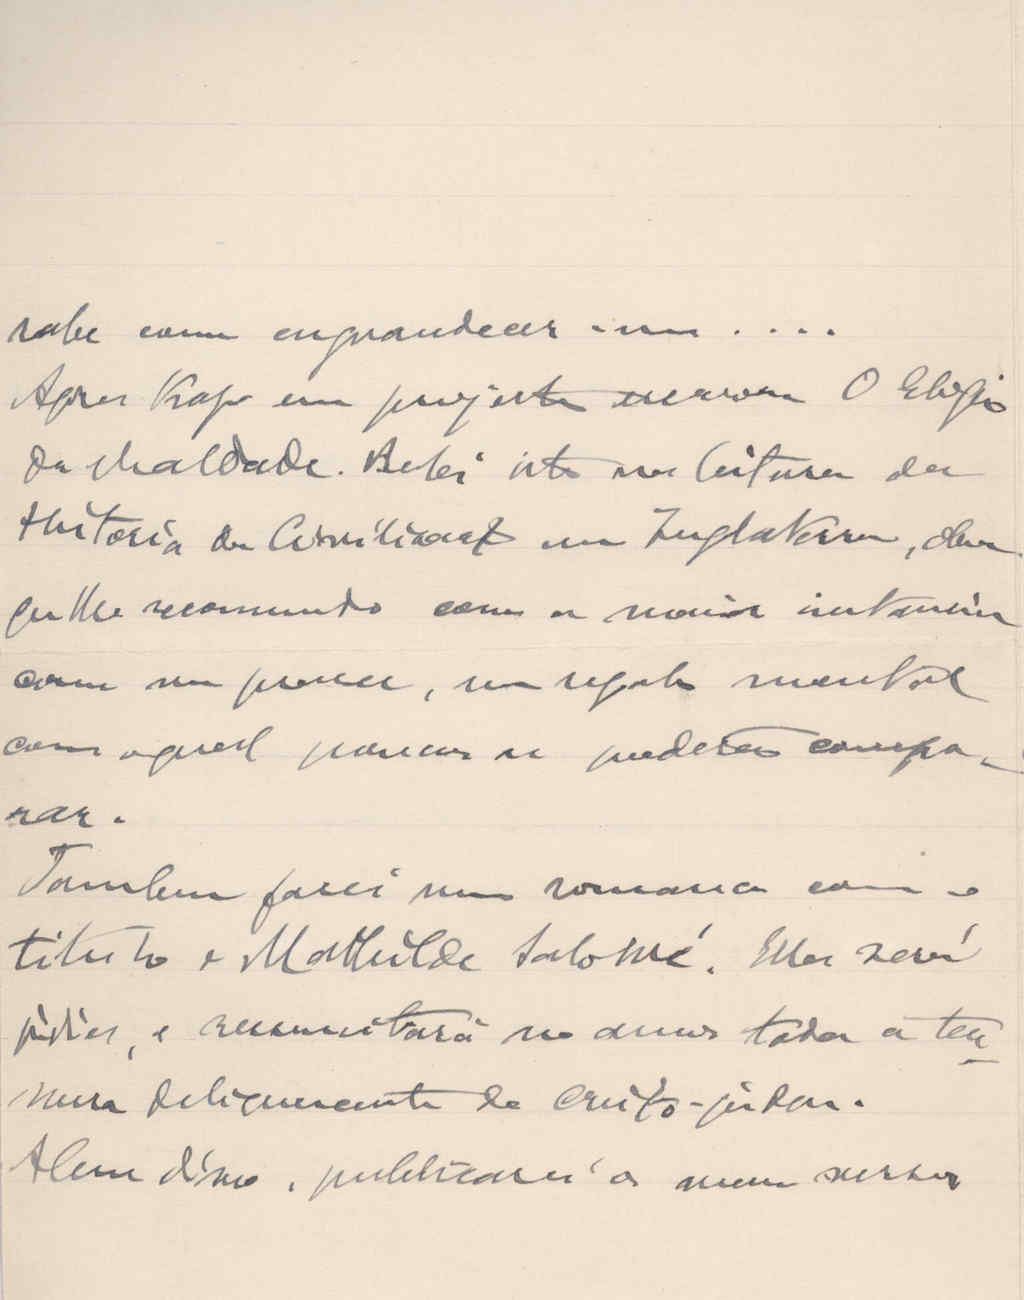 sabe como engrandecer-me....
Agora trago em projecto escrever O Elogio
da Maldade. Bebi isto na leitura da
Historia da Civilização na Inglaterra, obra
que lhe recommendo com a maior instancia
como um prazer, um regalo mental
com o qual poucos se poderão compa-
rar.
Tambem farei um romance com o
titulo Mathilde Salomé. Ella será
judia, e resuscitará no amor toda a ter
nura deliquescente de Cristo-judeu.
Alem disso, publicarei os meus versos